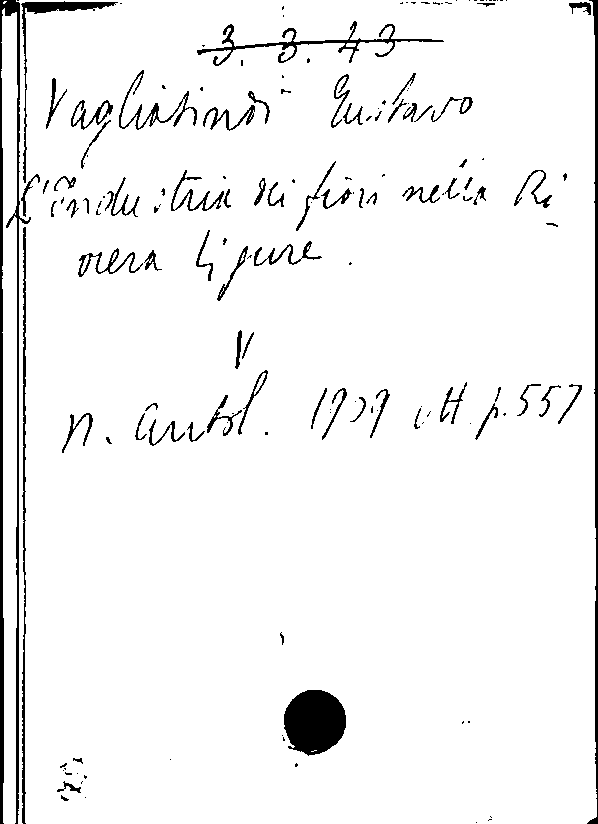 3. 3. 43
Vagliasindi Gustavo
L'industria dei fiori nella Ri
viera Ligure.
V
N. Antol. 1909 ott. p. 557